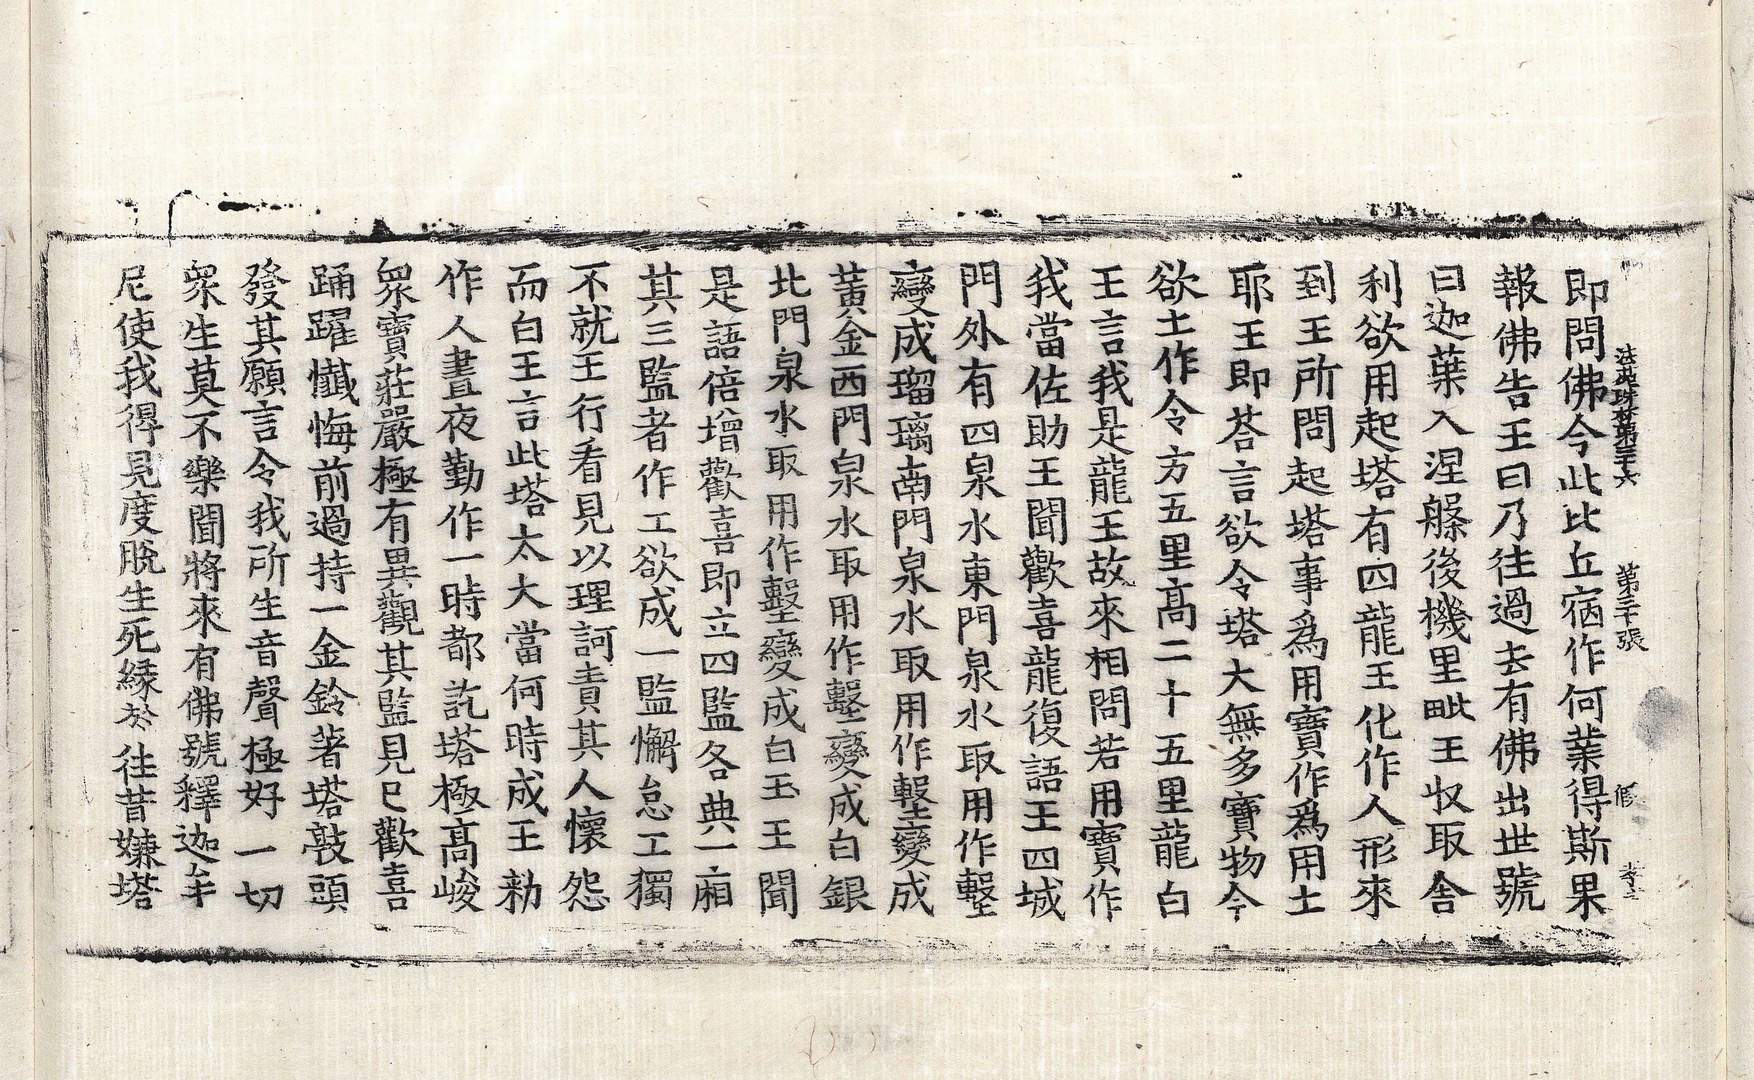 法苑珠林第三十六 第三十張 修 孝三
即問佛今此比丘宿作何業得斯果
報佛告王曰乃往過去有佛出世號
曰迦葉入涅槃後機里毗王収取舍
利欲用起塔有四龍王化作人形來
到王所問起塔事爲用寶作爲用土
耶王即荅言欲令塔大無多寶物今
欲土作令方五里髙二十五里龍白
王言我是龍王故來相問若用寶作
我當佐助王聞歡喜龍復語王四城
門外有四泉水東門泉水取用作墼
變成瑠璃南門泉水取用作墼變成
黃金西門泉水取用作墼變成白銀
北門泉水取用作墼變成白玉王聞
是語倍增歡喜即立四監各典一廂
其三監者作工欲成一監懈怠工獨
不就王行看見以理訶責其人懷怨
而白王言此塔太大當何時成王勑
作人晝夜勤作一時都訖塔極髙峻
衆寶莊嚴極有異觀其監見已歡喜
踊躍懺悔前過持一金鈴著塔敲頭
發其願言令我所生音聲極好一切
衆生莫不樂聞將來有佛號釋迦牟
尼使我得見度脫生死緣於往昔嫌塔